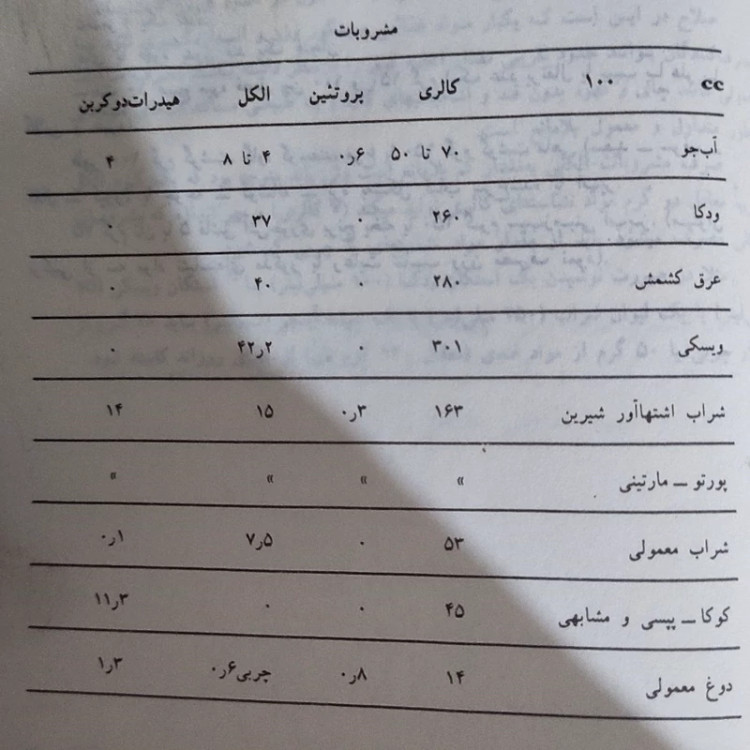 مشروبات
۱۰۰ cc کالری پروتئین الکل هیدرات‌دوکربن
آب‌جو ۷۰ تا ۵۰ ۰٫۶ ۴ تا ۸ ۴
ودکا ۲۶۰ ۰ ۳۷ ۰
عرق کشمش ۲۸۰ ۰ ۴۰ ۰
ویسکی ۳۰۱ ۰ ۴۲٫۲ ۰
شراب اشتهاآور شیرین ۱۶۳ ۰٫۳ ۱۵ ۱۴
پورتو ــ مارتینی » » » »
شراب معمولی ۵۳ ۰ ۷٫۵ ۰٫۱
کوکا ــ پپسی و مشابهی ۴۵ ۰ ۰ ۱۱٫۳
دوغ معمولی ۱۴ ۰٫۸ چربی۰٫۶ ۱٫۳